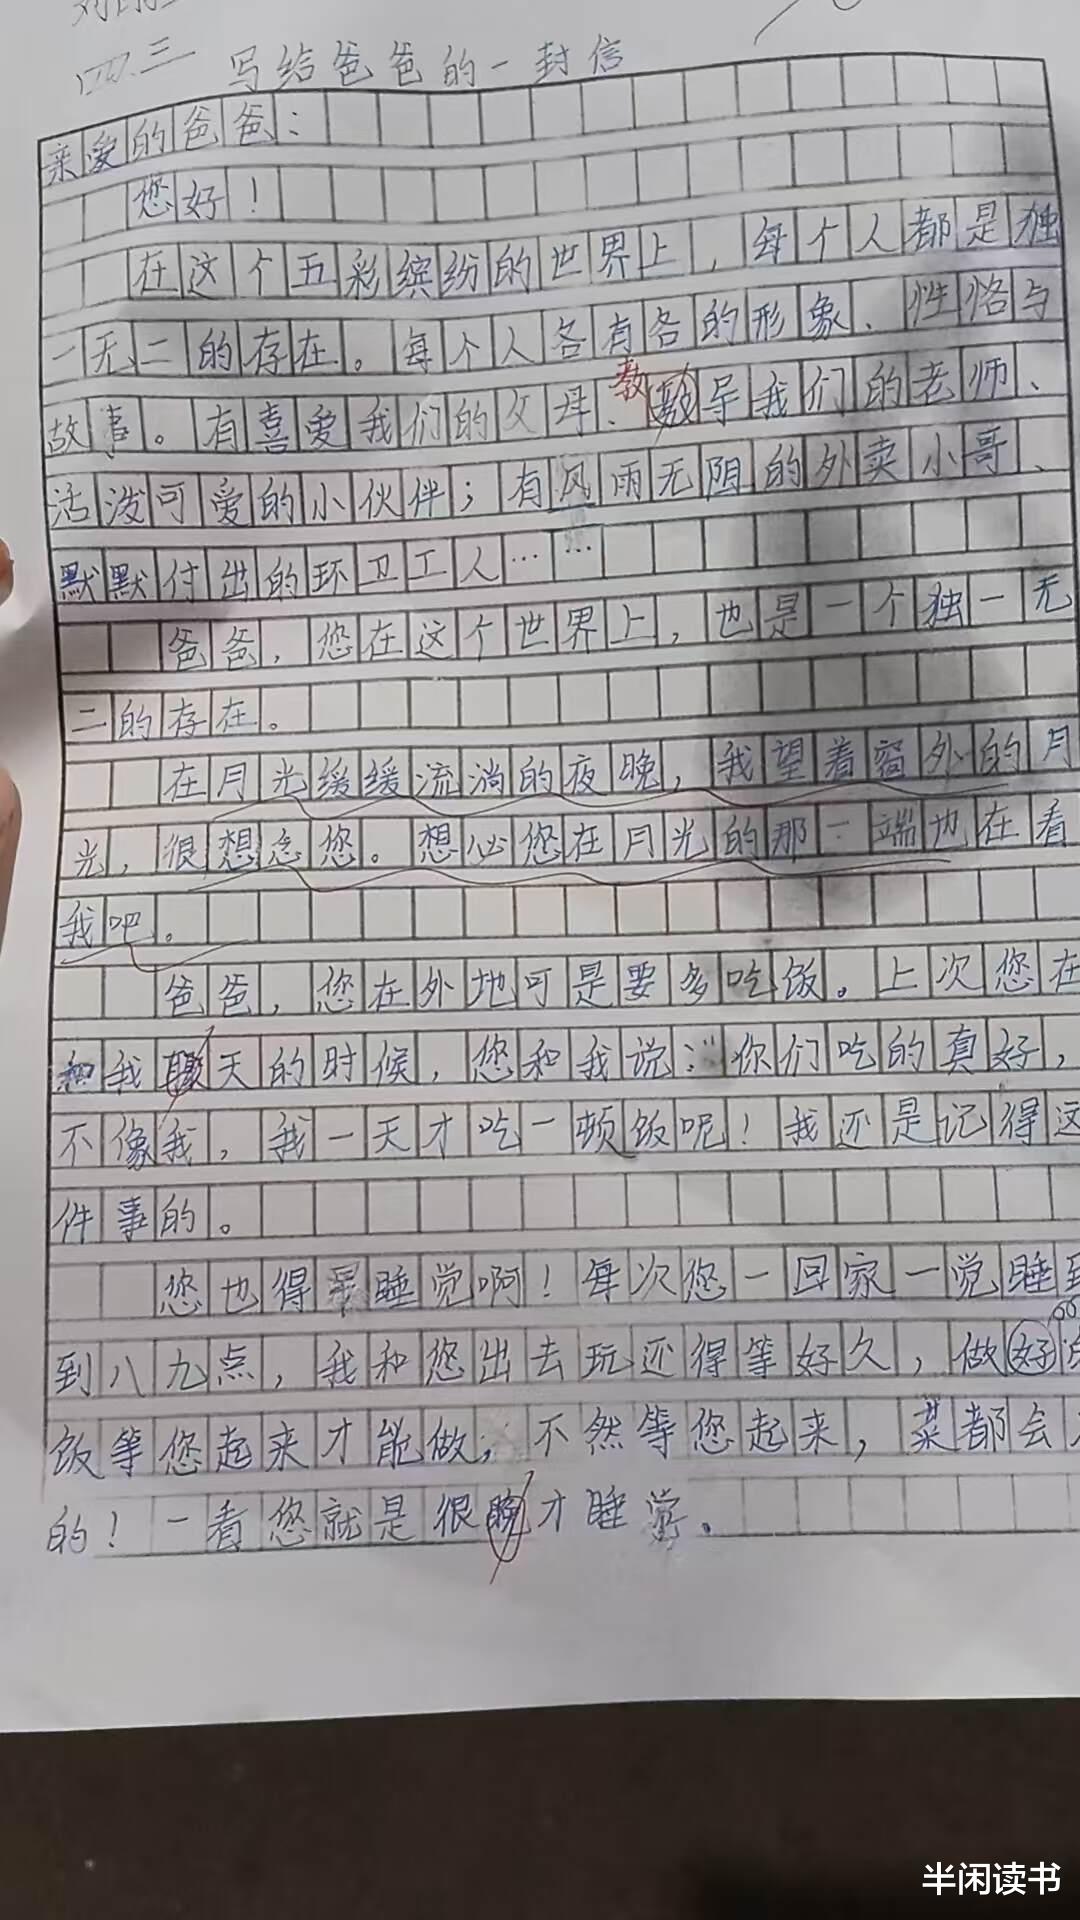 四.三 写给爸爸的一封信
亲爱的爸爸：
您好！
在这个五彩缤纷的世界上，每个人都是独
一无二的存在。每个人各有各的形象、性格与
教
故事。有喜爱我们的父母、教导我们的老师、
活泼可爱的小伙伴；有风雨无阻的外卖小哥、
默默付出的环卫工人……
爸爸，您在这个世界上，也是一个独一无
二的存在。
在月光缓缓流淌的夜晚，我望着窗外的月
光，很想念您。想必您在月光的那一端也在看
我吧。
爸爸，您在外地可是要多吃饭。上次您在
和我聊天的时候，您和我说：“你们吃的真好，
不像我，我一天才吃一顿饭呢！我还是记得这
件事的。
您也得早睡觉啊！每次您一回家一觉睡到
到八九点，我和您出去玩还得等好久，做好
饭等您起来才能做，不然等您起来，菜都会
的！一看您就是很晚才睡觉。
半闲读书